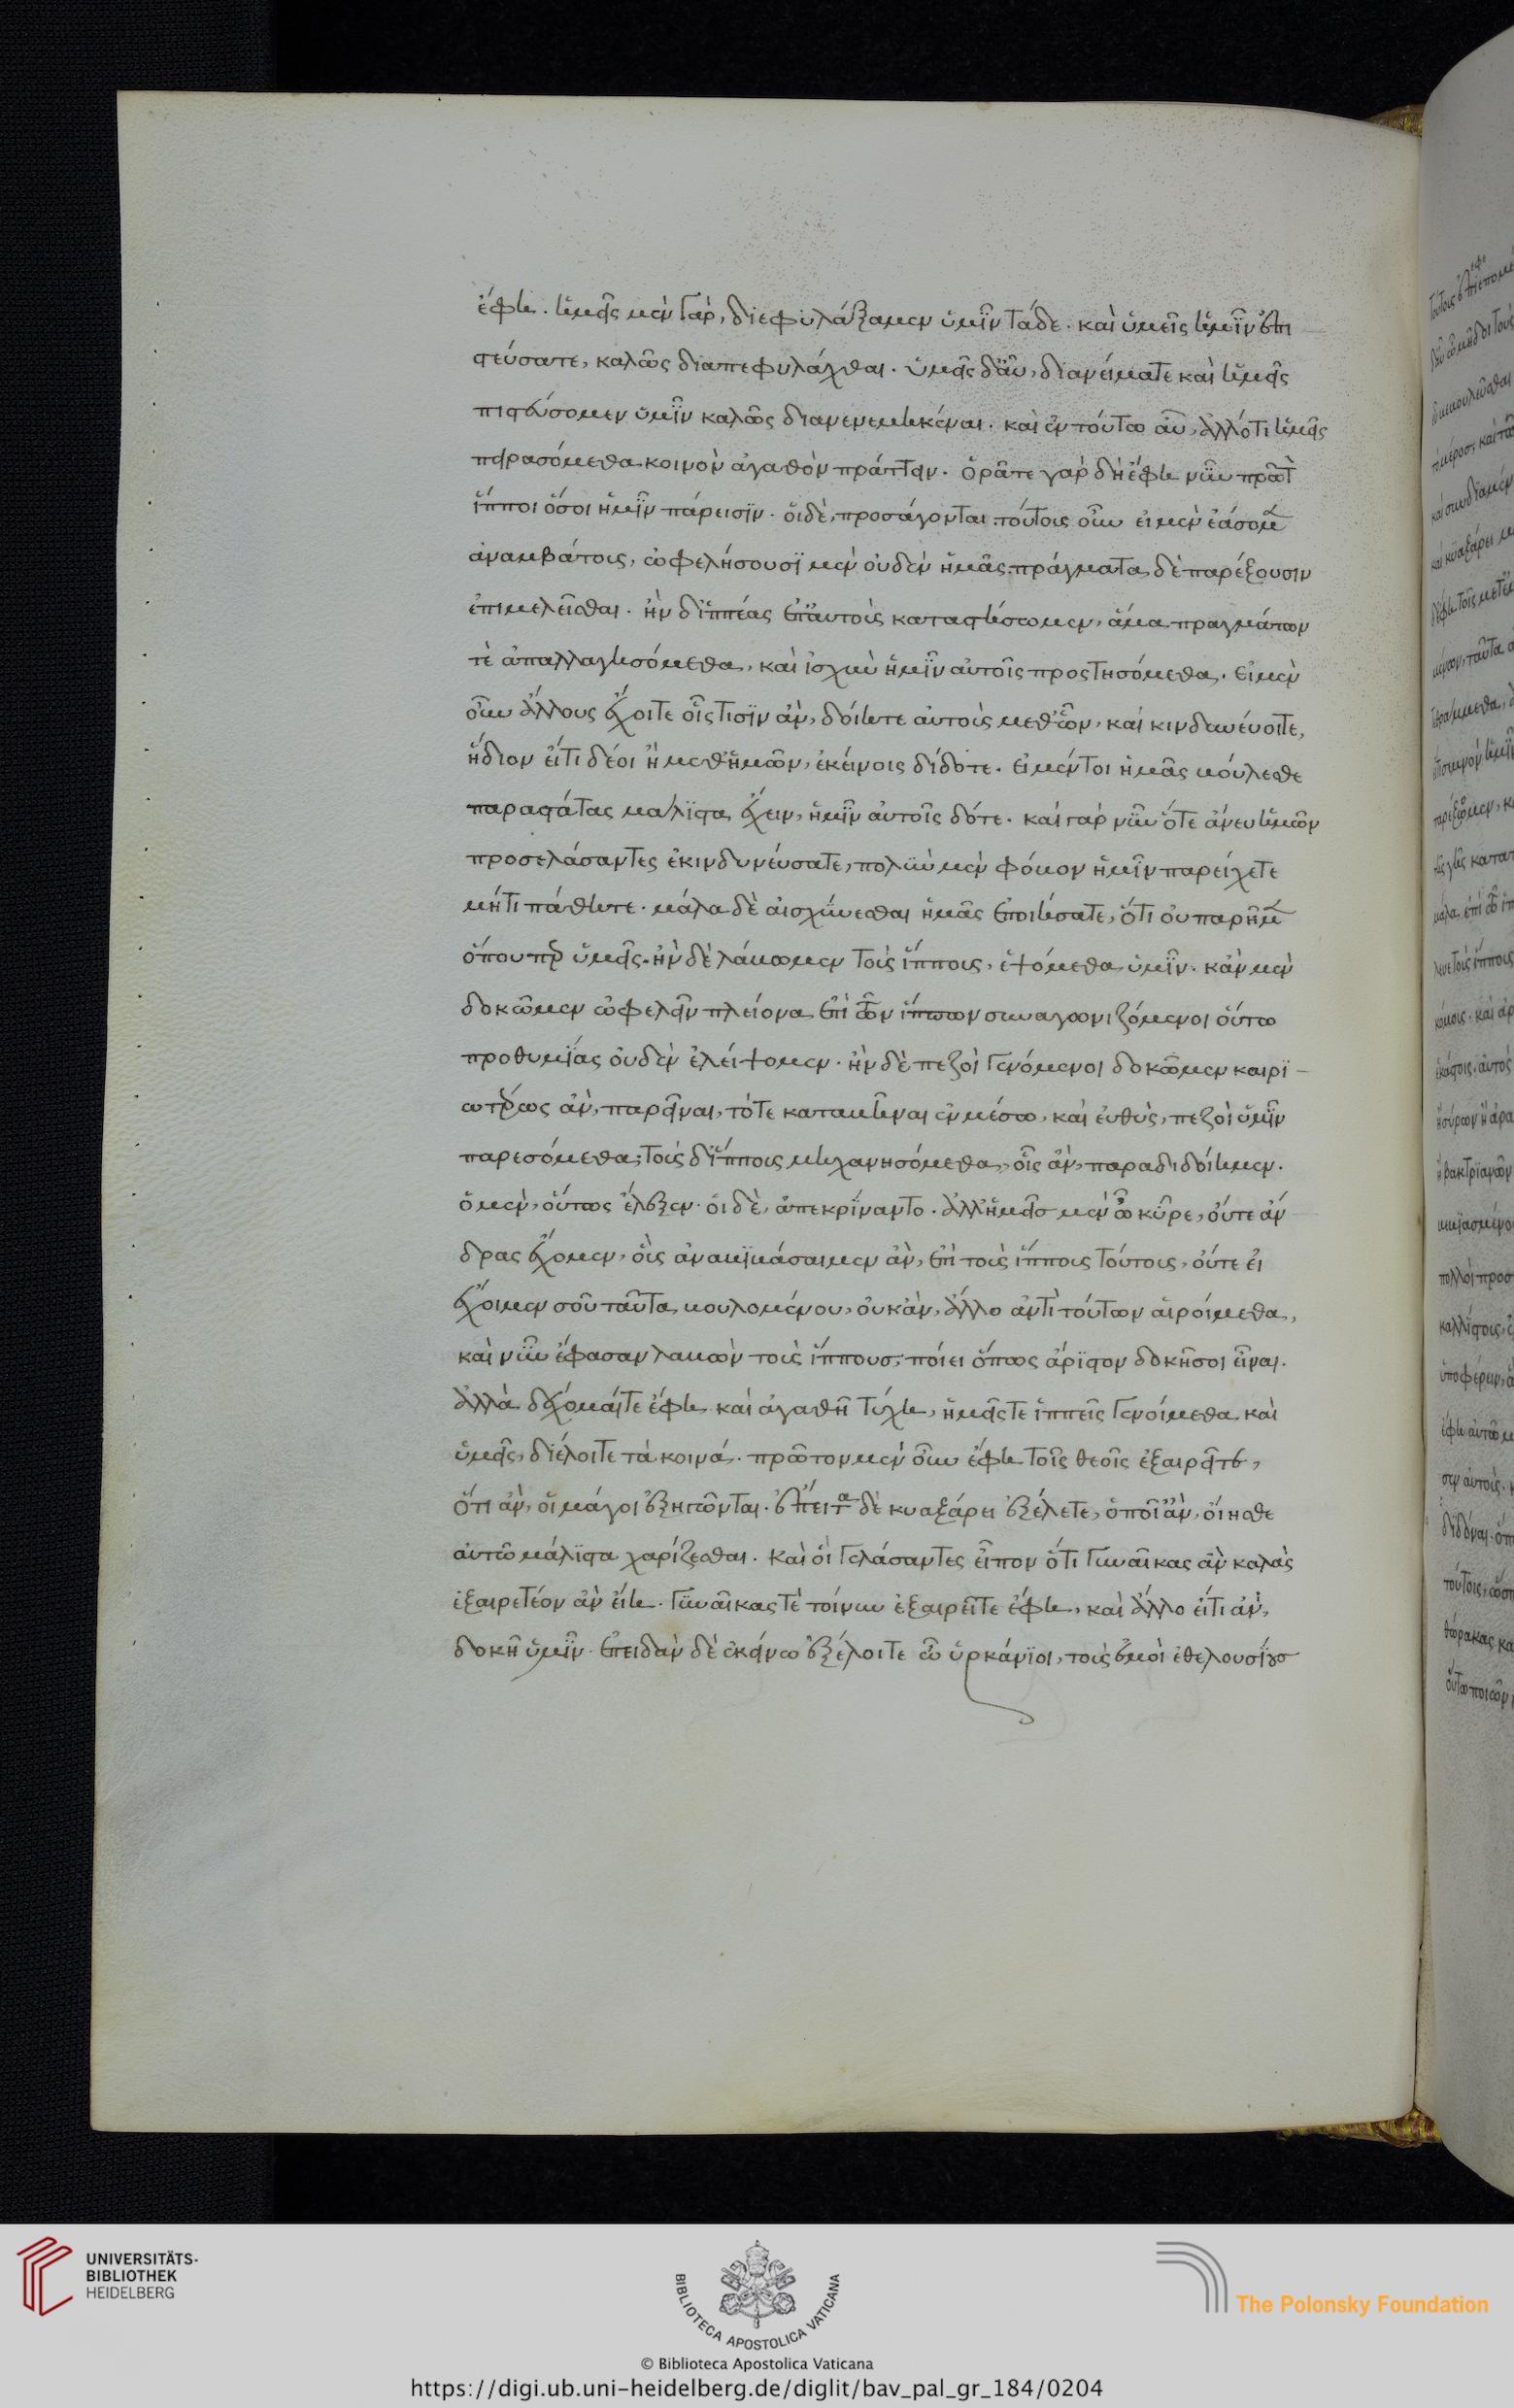 ἔφη. ἡμεῖς μὲν γὰρ, διεφυλάξαμεν ὑμῖν τάδε. καὶ ὑμεῖς ἡμῖν ἐπι
στεύσατε, καλῶς διαπεφυλάχθαι. ὑμεῖς δ' αὖ, διανείματε καὶ ἡμεῖς
πιστεύσομεν ὑμῖν καλῶς διανενεμηκέναι. καὶ ἐν τούτω αὖ, ἄλλότι ἡμεῖς
πειρασόμεθα κοινὸν ἀγαθὸν πράττειν. ὁρᾶτε γὰρ δὴ ἔφη νῦν πρῶτ
ἵπποι ὅσοι ἡμῖν πάρεισιν. οἱ δὲ, προσάγονται. τούτοις οὖν εἰ μὲν ἐάσομ
ἀναμβάτοις, ὠφελήσουσι μὲν οὐδὲν ἡμᾶς. πράγματα δὲ παρέξουσιν
ἐπιμελεῖσθαι. ἢν δ' ἱππέας ἐπ' αὐτοὶς καταστήσωμεν, ἅμα πραγμάτων
τὲ ἀπαλλαγησόμεθα, καὶ ἰσχὺν ἡμῖν αὐτοῖς προστησόμεθα. εἰ μὲν
οὖν ἄλλους ἔχοιτε οἷς τισὶν ἂν, δοίητε αὐτοὺς μεθ' ὧν, καὶ κινδυνεύοιτε,
ἥδιον εἴ τι δέοι ἢ μεθ' ἡμῶν, ἐκείνοις δίδοτε. εἰ μέντοι ἡμᾶς βούλεσθε
παραστάτας μάλιστα ἔχειν, ἡμῖν αὐτοῖς δότε. καὶ γὰρ νῦν ὅτε ἄνευ ἡμῶν
προσελάσαντες ἐκινδυνεύσατε, πολὺν μὲν φόβον ἡμῖν παρείχετε
μή τι πάθητε. μάλα δὲ αἰσχύνεσθαι ἡμᾶς ἐποιήσατε, ὅτι οὐ παρῆμ
ὅπουπερ ὑμεῖς. ἢν δὲ λάβωμεν τοὺς ἵππους, ἑψόμεθα ὑμῖν. κἂν μὲν
δοκῶμεν ὠφελεῖν πλείονα ἐπὶ τῶν ἵππων συναγωνιζόμενοι οὕτω
προθυμίας οὐδὲν ἐλείψομεν. ἢν δὲ πεζοὶ γενόμενοι δοκῶμεν καιρι
ωτέρως ἂν, παρεῖναι, τότε καταβῆναι ἐν μέσω, καὶ εὐθὺς, πεζοὶ ὑμῖν
παρεσόμεθα; τοὺς δ' ἵππους μηχανησόμεθα, οἷς ἂν, παραδιδοίημεν.
ὁ μὲν, οὕτως ἔλεξεν. οἱ δὲ, ἀπεκρίναντο. ἀλλ' ἡμεῖς μὲν ὦ κῦρε, οὔτε ἄν
δρας ἔχομεν, οὓς ἀναβιβάσαιμεν ἂν, ἐπὶ τοὺς ἵππους τούτους, οὔτε εἰ
ἔχοιμεν σοῦ ταῦτα βουλομένου, οὐκ ἂν, ἄλλο ἀντὶ τούτων αἱροίμεθα,
καὶ νῦν ἔφασαν λαβὼν τοὺς ἵππους, ποίει ὅπως ἄριστον δοκῆ σοι εἶναι.
ἀλλὰ δέχομαί τε ἔφη καὶ ἀγαθῆ τύχη, ἡμεῖς τε ἱππεῖς γενοίμεθα καὶ
ὑμεῖς, διέλοιτε τὰ κοινά. πρῶτον μὲν οὖν ἔφη τοῖς θεοῖς ἐξαιρεῖτε,
ὅτι ἂν, οἱ μάγοι ἐξηγῶνται. ἔπειτα δὲ κυαξάρει ἐξέλετε, ὁποῖ' ἂν, οἴησθε
αὐτῶ μάλιστα χαρίζεσθαι. καὶ οἱ γελάσαντες εἶπον ὅτι γυναῖκας ἂν καλὰς
ἐξαιρετέον ἂν εἴη. γυναῖκας τὲ τοίνυν ἐξαιρεῖτε ἔφη, καὶ ἄλλο εἴτι ἂν,
δοκῆ ὑμῖν. ἐπειδὰν δὲ ἐκείνω ἐξέλοιτε ὦ ὑρκάνιοι, τοὺς ἐμοὶ ἐθελουσίους
UNIVERSITÄTS-
BIBLIOTHEK
HEIDELBERG
BIBLIOTECA APOSTOLICA VATICANA
The Polonsky Foundation
© Biblioteca Apostolica Vaticana
https://digi.ub.uni-heidelberg.de/diglit/bav_pal_gr_184/0204